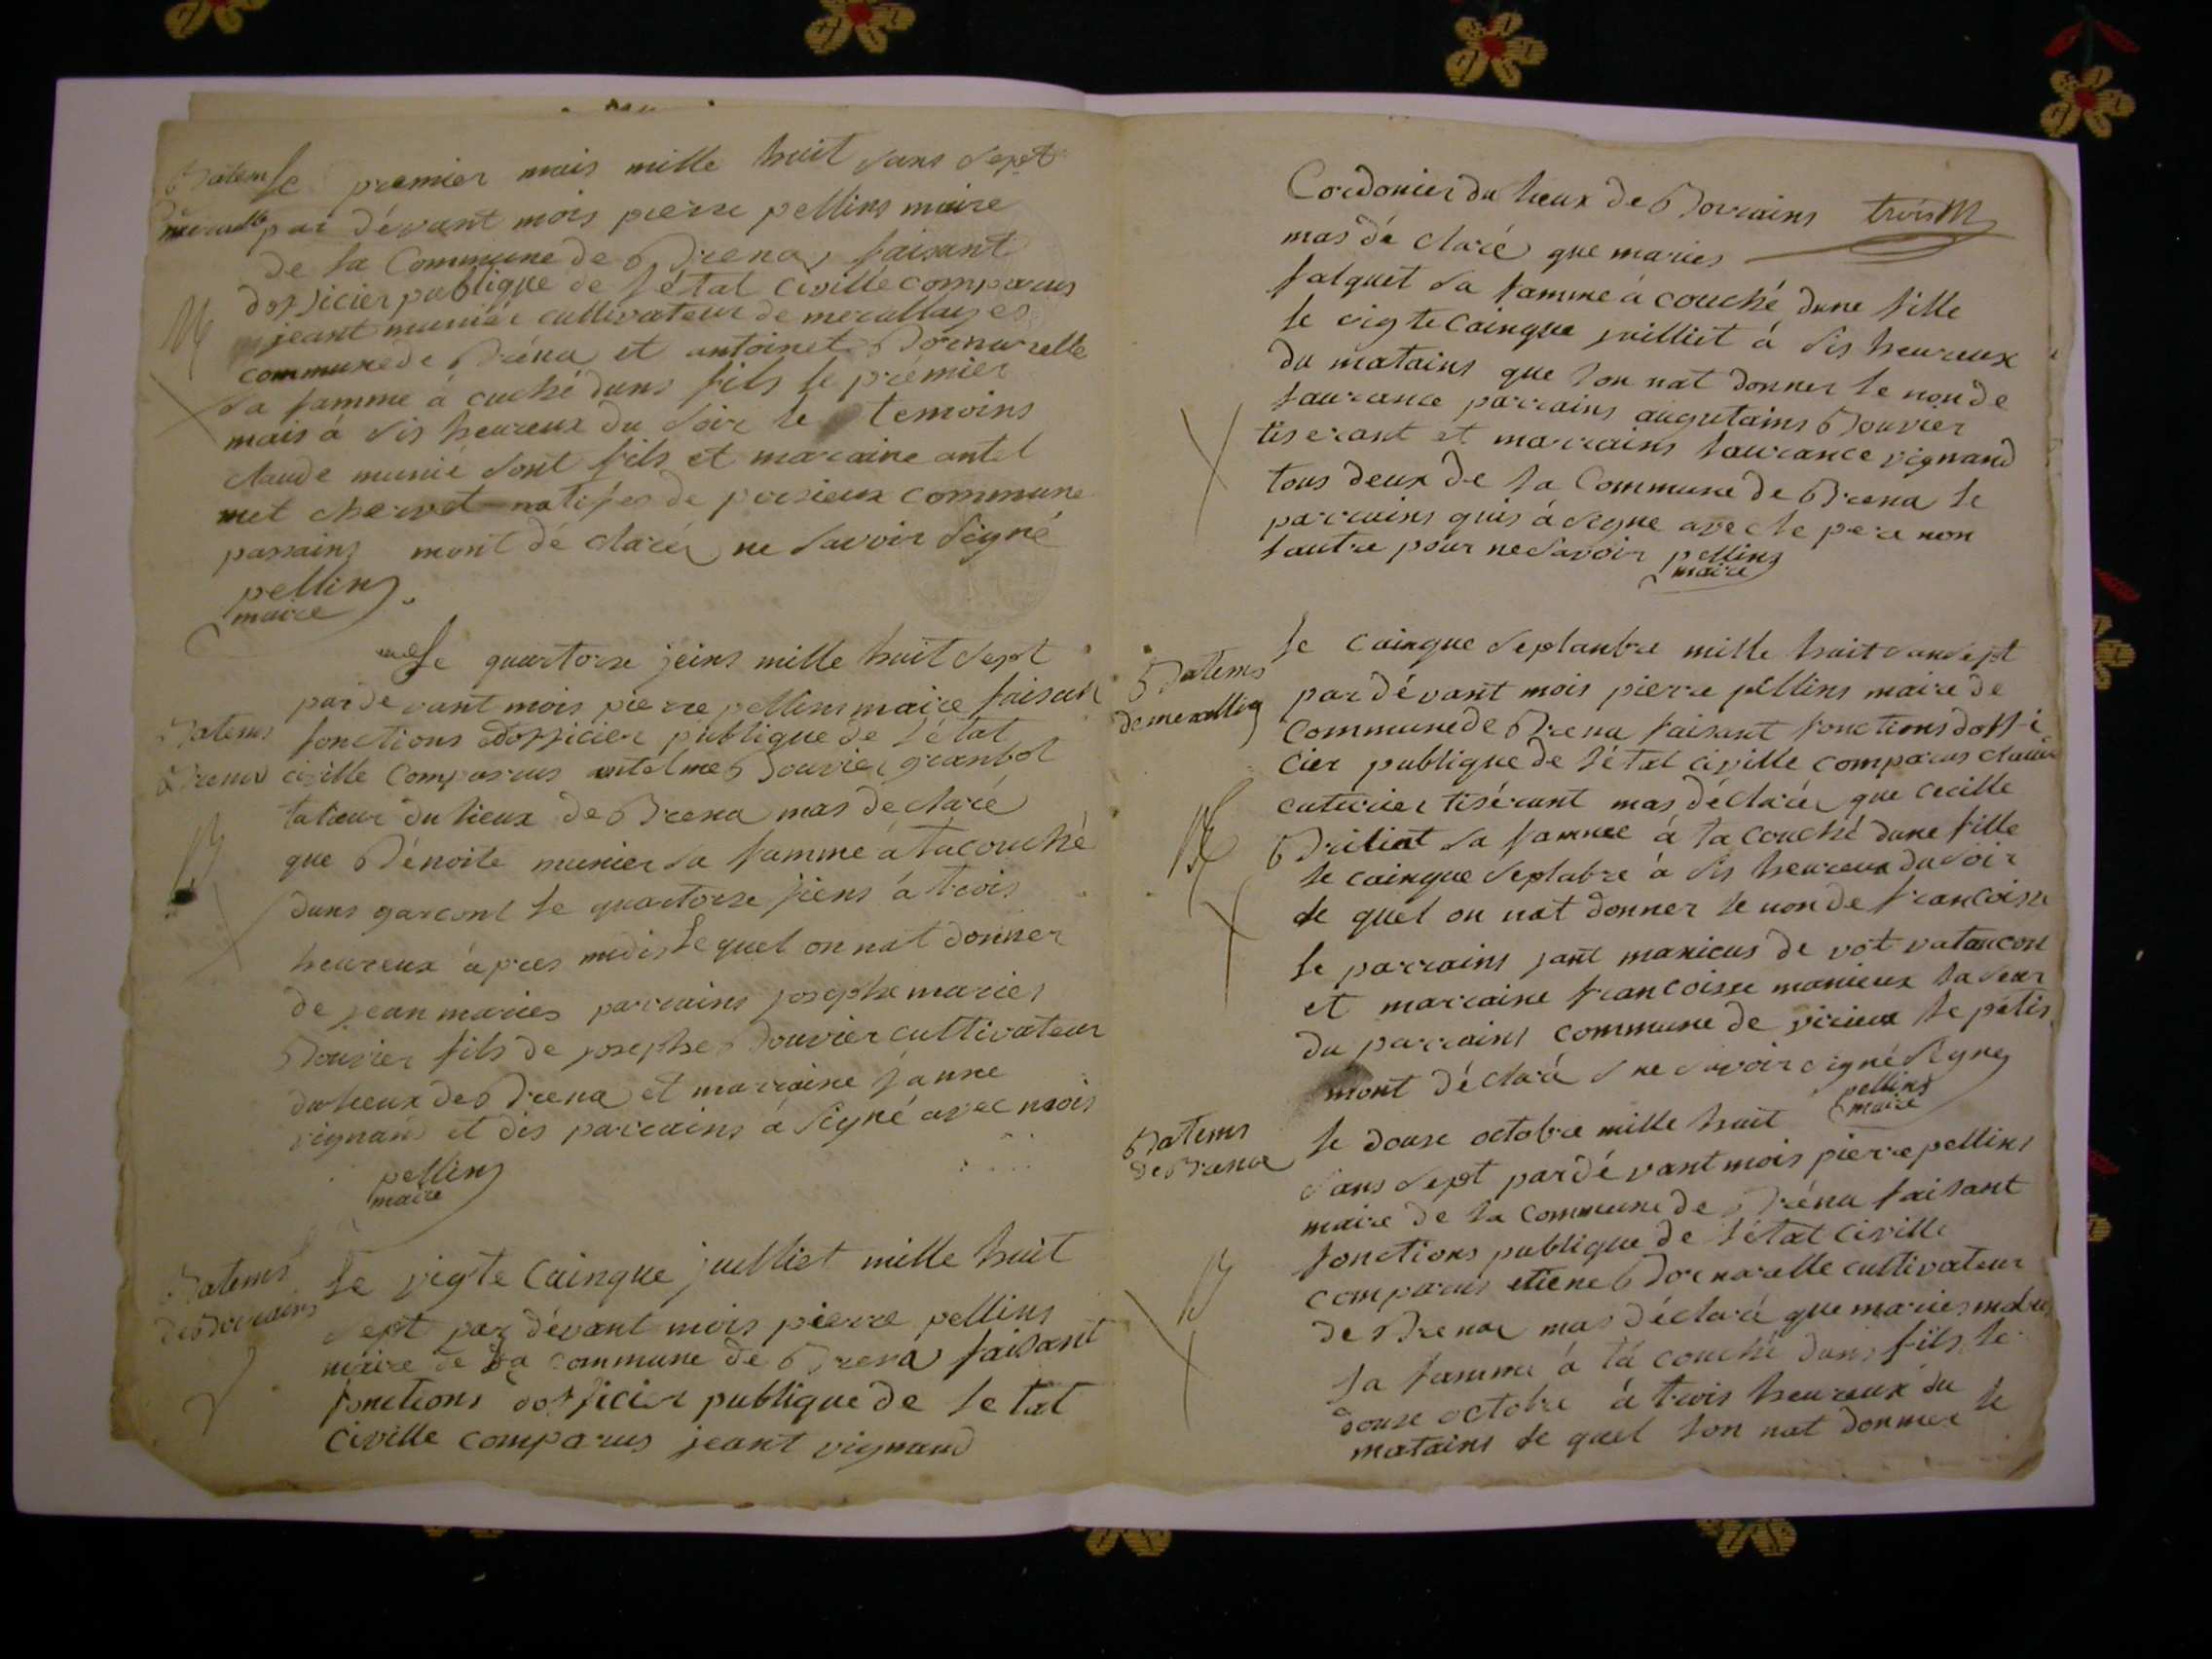 Batem
de meralla
le premier mais mille huit sans sept
par dévant mois pierre pellins maire
de la Commune de Brena faisant
dofficier publique de l'état civille comparus
jeant munier cultivateur de merallayes
commune de Bréna et antoinet Bornarelle
sa famme à cuché duns fils le premier
mais à sis heureux du soir le temoins
claude munié sont fils et maraine antel
met chervet natifes de poisieux commune
parrains mont dé claré ne savoir signé
pellins
maire
Batems
Brena
le quartorse jeins mille huit sept
par de vant mois pierre pellins maire faisan
fonctions dofficier publique de l'état
civille comparus antelme Bouvier
tateur du lieux de Brena mas de claré
que Bénoite munier sa famme à ta couché
duns garcont le quartorse jiens à trois
heureux àpres midis le quel on nat donner
de jean maries parrains josephe maries
Bouvier fils de josephe Bouvier cultivateur
du lieux de Brena et marraine janne
vignand et dis parrains à signé avec mois
pellins
maire
Batems
de Borrains
le vigte cainque juilliet mille huit
sept par dévant mois pierre pellins
maire de la commune de Brena faisant
fonctions dofficier publique de letat
civille comparus jeant vignand
Cordonier du lieux de Borrains trois M
mas dé claré que maries
falquet sa famme à couché dune fille
le vigte cainque juilliet à sis heureux
du matains que lon nat donner le non de
laurance parrains augutains Bouvier
tiserant et marrains laurance vignand
tous deux de la Commune de Brena le
parrains quis à signe avec le pere non
lautre pour ne savoir pellins
maire
Batems
de merallia
le cainque septanbre mille huit sans sept
par dévant mois pierre pellins maire de
Commune de Brena faisant fonctions doffi
cier publique de l'état civille comparus claude
cuturier tisérant mas déclaré que cecille
Briliat sa famme à ta couché dune fille
le cainque septabre à sis heureux du soir
le quel on nat donner le non de francoise
le parrains jant manicus de vot
et marraine francoisse manieux sa seur
du parrains commune de virieux le petis
mont déclaré ne savoir signé signe
pellins
maire
Batems
de Brena
le douse octobre mille huit
sans sept par dé vant mois pierre pellins
maire de la commune de Bréna faisant
fonctions publique de l'état civille
comparus etiene Bornarelle cultivateur
de Brena mas déclaré que maries
sa famme à tá couché duns fils le
douse octobre à trois heureux du
matains le quel lon nat donner le